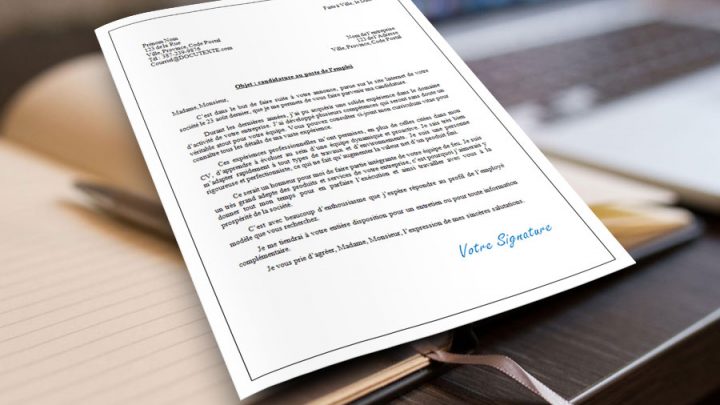 Faite à Ville, le Date
Prénom Nom
123 de la Rue
Ville, Province, Code Postal
Tél : 387-339-9876
Courriel@DOCUTEXTE.com
Nom de l'entreprise
123 de l'Adresse
Ville, Province, Code Postal
Objet : candidature au poste de l'emploi
Madame, Monsieur,
C'est dans le but de faire suite à votre annonce, parue sur le site Internet de votre
société le 23 août dernier, que je me permets de vous faire parvenir ma candidature.
Durant les dernières années, j'ai pu acquérir une solide expérience dans le domaine
d'activité de votre entreprise. J'ai développé plusieurs compétences qui seront sans doute un
véritable atout pour votre équipe. Vous pouvez consulter ci-joint mon curriculum vitae pour
connaître tous les détails de ma vaste expérience.
Ces expériences professionnelles m'ont permises, en plus de offres citées dans mon
CV, d'apprendre à évoluer au sein d'une équipe dynamique et proactive. Je sais très bien
m'adapter rapidement à tout types de travaux et d'environnements. Je suis une personne
rigoureuse et perfectionniste, ce qui ne fait qu'augmenter la valeur net d'un produit fini.
Ce serait un honneur pour moi de faire partie intégrante de votre équipe de feu. Je suis
un très grand adepte des produits et services de votre entreprise, c'est pourquoi j'aimerais y
donner tout mon temps pour en parfaire l'exécution et ainsi travailler avec vous à la
prospérité de la société.
C'est avec beaucoup d'enthousiasme que j'espère répondre au profil de l'employé
modèle que vous recherchez.
Je me tiendrai à votre entière disposition pour un entretien ou pour toute information
complémentaire.
Je vous prie d'agréer, Madame, Monsieur, l'expression de mes sincères salutations.
Votre Signature